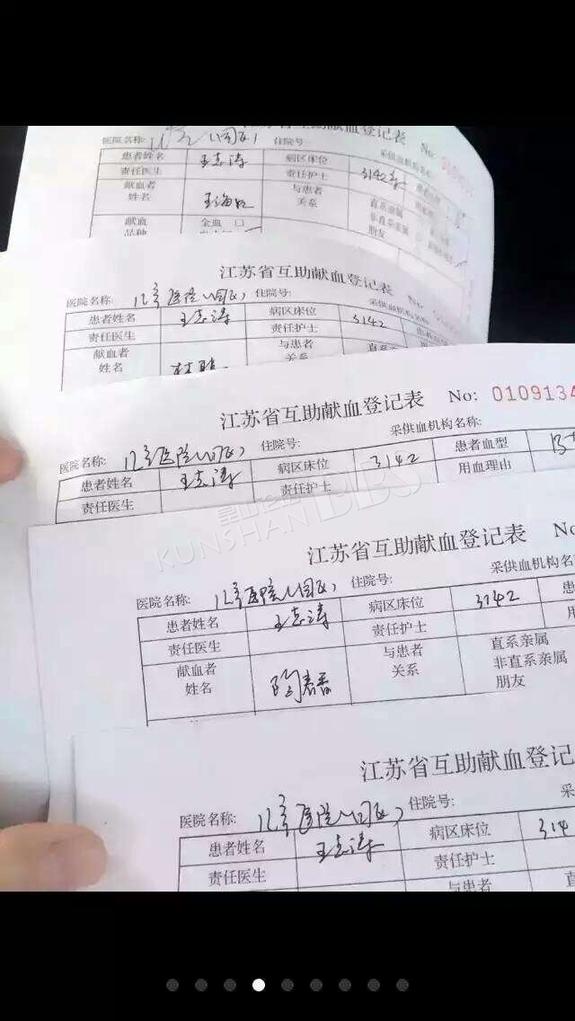 江苏省互助献血登记表 No: 0109
医院名称: 住院号: 采供血机构名称:
患者姓名 王志涛 病区床位 3142
责任医生 责任护士
献血者姓名 与患者关系 直系亲属 非直系亲属 朋友
献血品种 全血 □
江苏省互助献血登记表
医院名称: 儿童医院(园区) 住院号: 采供血机构名称:
患者姓名 王志涛 病区床位 3142
责任医生 责任护士
献血者姓名 与患者关系
江苏省互助献血登记表 No: 0109134
医院名称: 儿童医院(园区) 住院号: 采供血机构名称:
患者姓名 王志涛 病区床位 3142 患者血型 B
责任医生 责任护士 用血理由
KUNSHAN BBS
江苏省互助献血登记表 No
医院名称: 儿童医院(园区) 住院号: 采供血机构名
患者姓名 王志涛 病区床位 3142
责任医生 责任护士
献血者姓名 与患者关系 直系亲属 非直系亲属 朋友
江苏省互助献血登记
医院名称: 儿童医院(园区) 住院号:
患者姓名 王志涛 病区床位 314
责任医生 责任护士
与患者